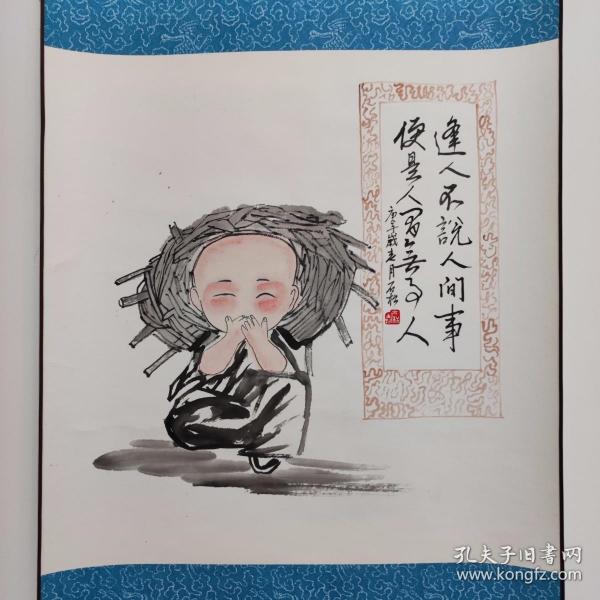 逢人不說人间事
便是人间無事人
庚子歲春月石松
孔夫子旧書网
www.kongfz.com